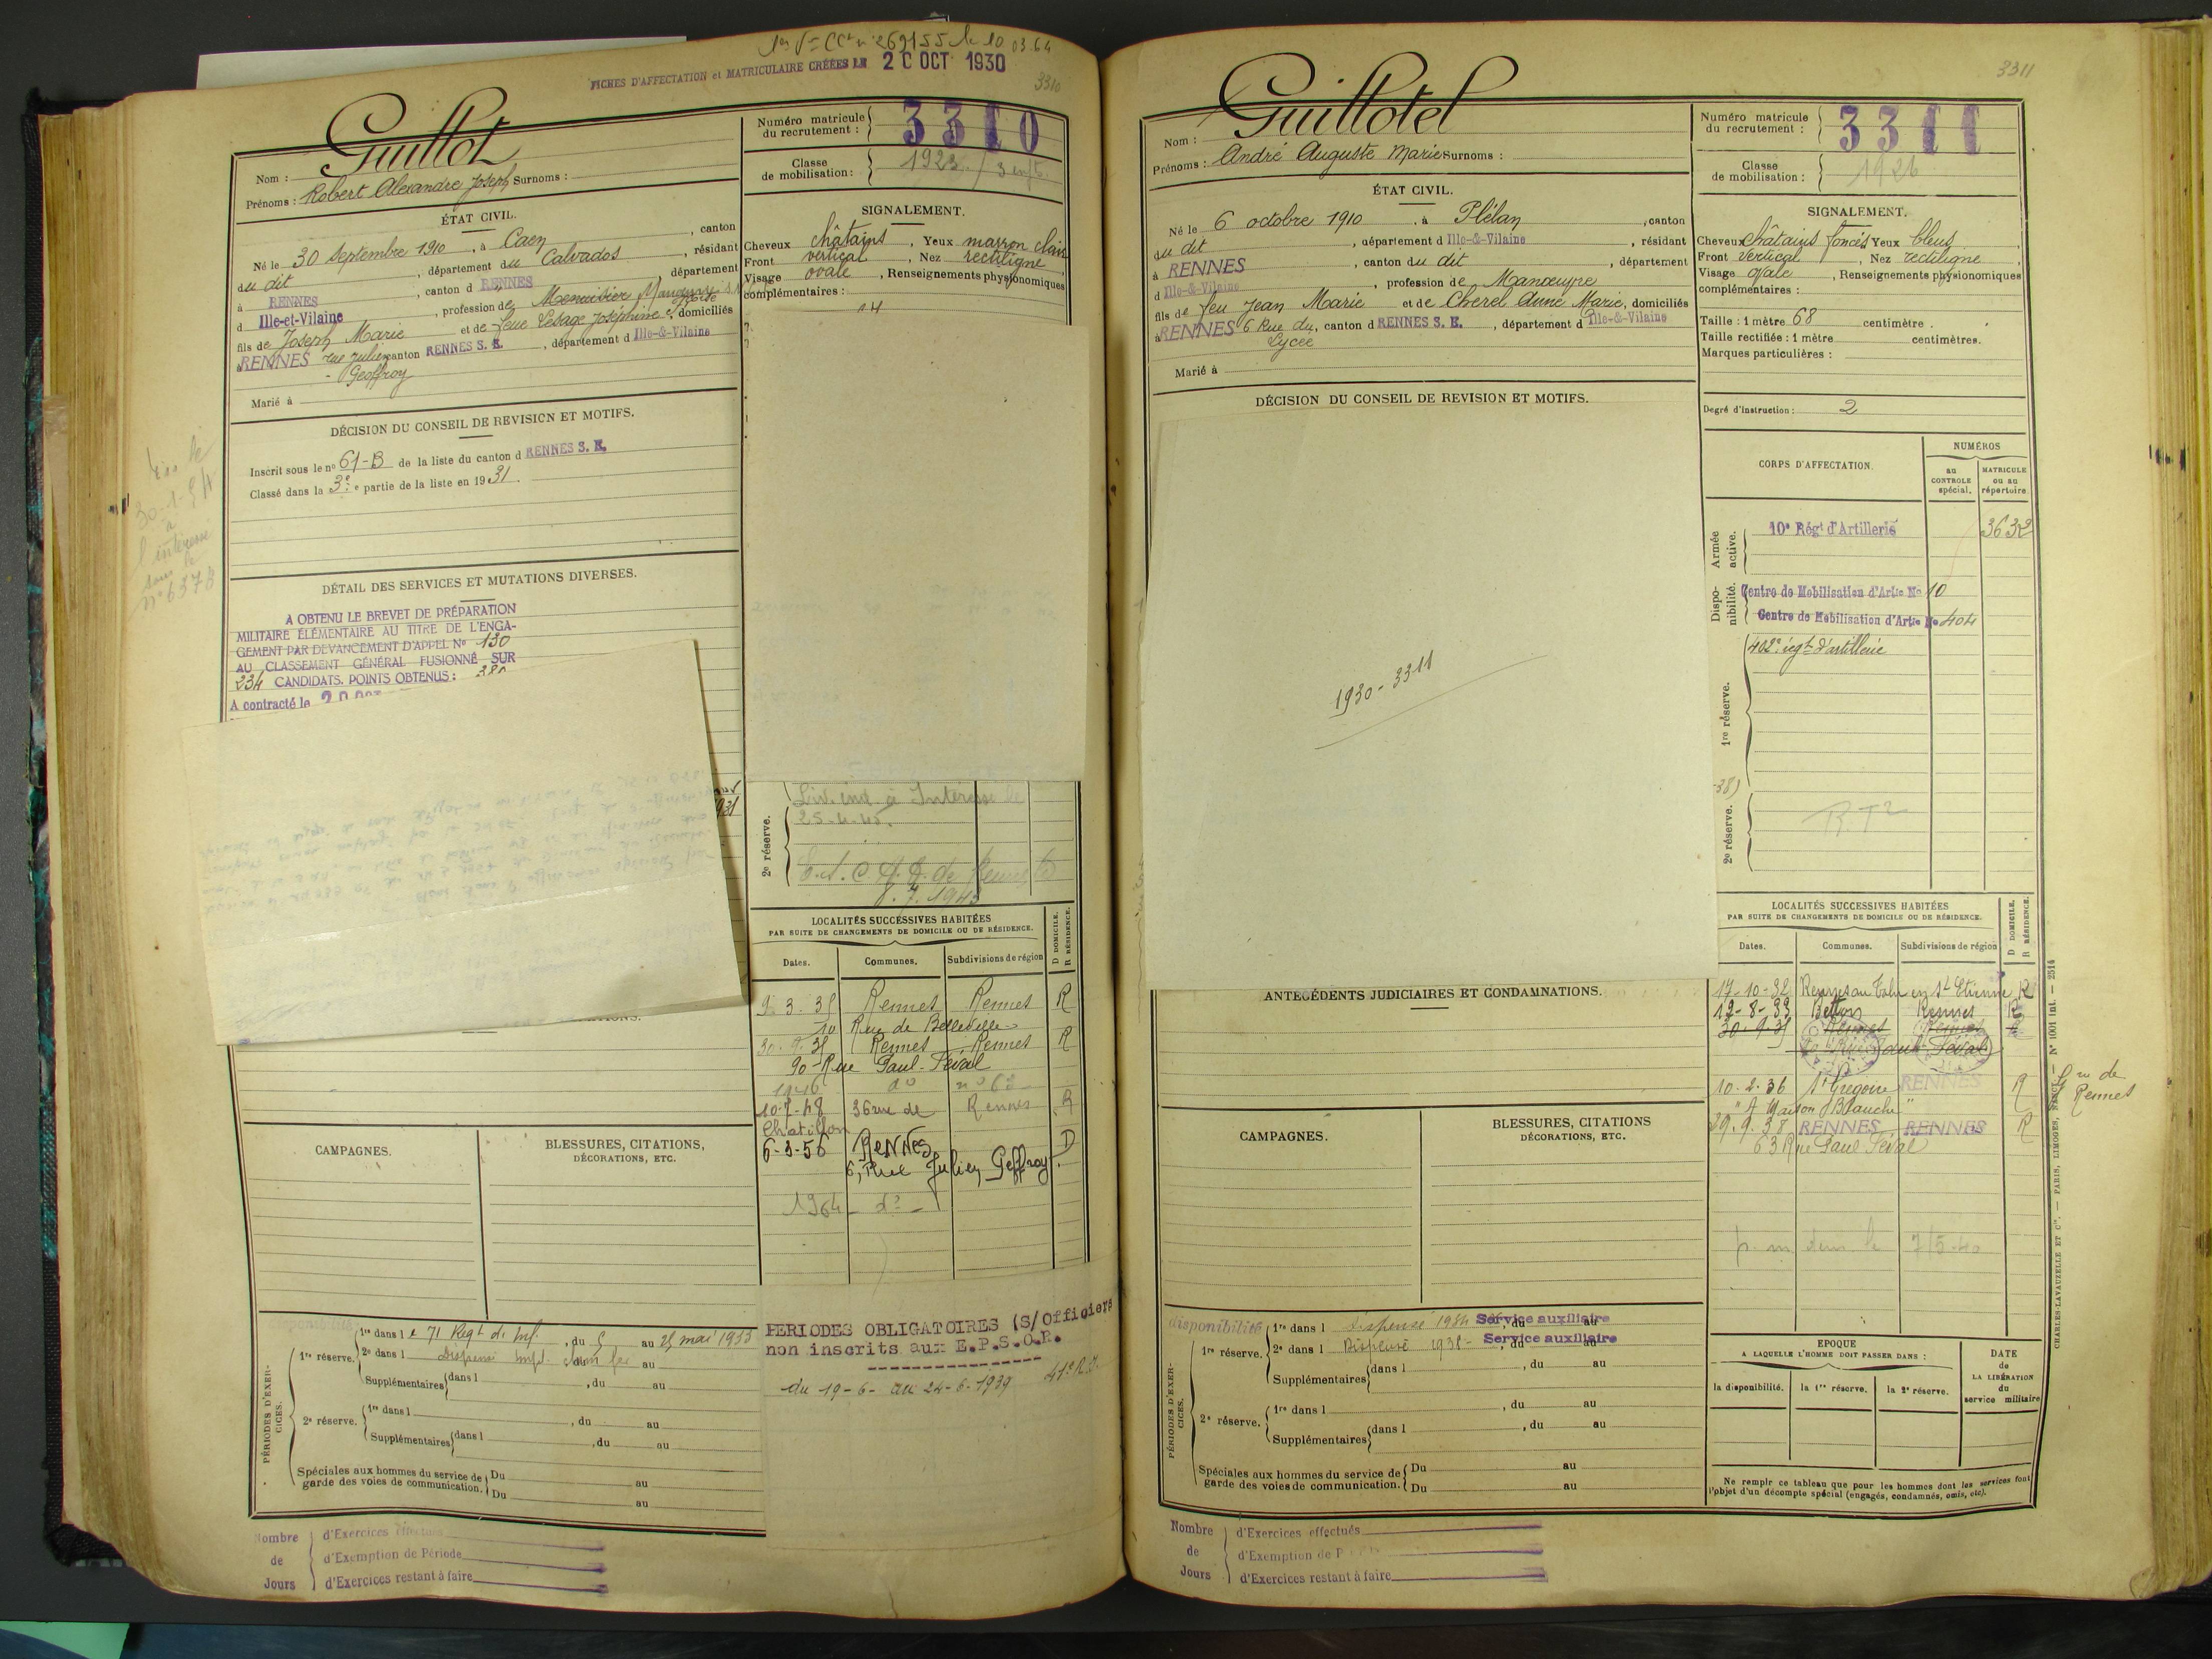 FICHES D'AFFECTATION et MATRICULAIRE CRÉÉES LE 20 OCT 1930
3310
Nom : Guillot
Prénoms : Robert Alexandre Joseph Surnoms :
Numéro matricule du recrutement : 3310
Classe de mobilisation : 1923
ÉTAT CIVIL.
Né le 30 Septembre 1910, à Caen, canton
du dit, département du Calvados, résidant
à RENNES, canton d RENNES, département
d Ille-et-Vilaine, profession de Menuisier
fils de Joseph Marie et de feue Lesage Joséphine, domiciliés
à RENNES rue Julien Geoffroy canton RENNES S. E., département d Ille-&-Vilaine
Marié à
SIGNALEMENT.
Cheveux châtains, Yeux marron clair
Front vertical, Nez rectiligne
Visage ovale, Renseignements physionomiques
complémentaires :
DÉCISION DU CONSEIL DE REVISION ET MOTIFS.
Inscrit sous le no 61-B de la liste du canton d RENNES S. E.
Classé dans la 3e partie de la liste en 1931.
DÉTAIL DES SERVICES ET MUTATIONS DIVERSES.
A OBTENU LE BREVET DE PRÉPARATION
MILITAIRE ÉLÉMENTAIRE AU TITRE DE L'ENGA-
GEMENT PAR DEVANCEMENT D'APPEL No 130
AU CLASSEMENT GÉNÉRAL FUSIONNÉ SUR
234 CANDIDATS. POINTS OBTENUS :
A contracté le
30-1-54
à
l'intéressé
sous le
n° 6378
2e réserve.
25-4-45
LOCALITÉS SUCCESSIVES HABITÉES
PAR SUITE DE CHANGEMENTS DE DOMICILE OU DE RÉSIDENCE.
D DOMICILE.
R RÉSIDENCE.
Dates. Communes. Subdivisions de région
9-3-35 Rennes Rennes R
10 Rue de Belleville
30-9-35 Rennes Rennes R
90 Rue Paul-Féval
1946 do n° 63
10-7-48 36 rue de Rennes R
Chatillon
6-3-56 RENNES D
6, Rue Julien Geffroy
1964 - do -
CAMPAGNES.
BLESSURES, CITATIONS,
DÉCORATIONS, ETC.
PÉRIODES D'EXERCICES.
1re réserve. 1re dans le 71 Regt di Inf., du 5 au 25 mai 1933
2e dans l Dispensé, du au
Supplémentaires dans l, du au
2e réserve. 1re dans l, du au
Supplémentaires dans l, du au
Spéciales aux hommes du service de
garde des voies de communication. Du au
Du au
PERIODES OBLIGATOIRES (S/Officiers
non inscrits aux E.P.S.O.R.
du 19-6- au 24-6-1939 41e R.I.
Nombre de Jours
d'Exercices effectués
d'Exemption de Période
d'Exercices restant à faire
3311
Nom : Guillotel
Prénoms : André Auguste Marie Surnoms :
Numéro matricule du recrutement : 3311
Classe de mobilisation : 1926
ÉTAT CIVIL.
Né le 6 octobre 1910, à Plélan, canton
du dit, département d Ille-&-Vilaine, résidant
à RENNES, canton du dit, département
d Ille-&-Vilaine, profession de Manœuvre
fils de feu Jean Marie et de Cherel Anne Marie, domiciliés
à RENNES 6 Rue du Lycée, canton d RENNES S. E., département d Ille-&-Vilaine
Marié à
SIGNALEMENT.
Cheveux châtains foncés Yeux bleus
Front vertical, Nez rectiligne
Visage ovale, Renseignements physionomiques
complémentaires :
Taille : 1 mètre 68 centimètre.
Taille rectifiée : 1 mètre centimètres.
Marques particulières :
Degré d'instruction : 2
DÉCISION DU CONSEIL DE REVISION ET MOTIFS.
1930-3311
CORPS D'AFFECTATION.
NUMÉROS
au CONTROLE spécial.
MATRICULE ou au répertoire.
Armée active.
10e Régt d'Artillerie 3632
Disponibilité.
Centre de Mobilisation d'Artie No 10
Centre de Mobilisation d'Artie No 404
1re réserve.
402e régt d'artillerie
2e réserve.
ANTECÉDENTS JUDICIAIRES ET CONDAMNATIONS.
LOCALITÉS SUCCESSIVES HABITÉES
PAR SUITE DE CHANGEMENTS DE DOMICILE OU DE RÉSIDENCE.
D DOMICILE.
R RÉSIDENCE.
Dates. Communes. Subdivisions de région
17-10-32 Rennes R
12-8-33 Betton Rennes R
30-9-35 Rennes Rennes R
10-2-36 St Grégoire RENNES R
"A Maison Blanche"
29-9-38 RENNES RENNES R
63 Rue Paul Féval
7/5-40
CAMPAGNES.
BLESSURES, CITATIONS
DÉCORATIONS, ETC.
PÉRIODES D'EXERCICES.
disponibilité 1re dans l Dispensé 1934 Service auxiliaire
1re réserve. 2e dans l Dispensé 1938 - Service auxiliaire
Supplémentaires dans l, du au
2e réserve. 1re dans l, du au
Supplémentaires dans l, du au
Spéciales aux hommes du service de
garde des voies de communication. Du au
Du au
EPOQUE
A LAQUELLE L'HOMME DOIT PASSER DANS :
la disponibilité. la 1re réserve. la 2e réserve.
DATE de LA LIBÉRATION du service militaire
Ne remplir ce tableau que pour les hommes dont les services font
l'objet d'un décompte spécial (engagés, condamnés, omis, etc).
Nombre de Jours
d'Exercices effectués
d'Exemption de
d'Exercices restant à faire
CHARLES-LAVAUZELLE ET Cie. — PARIS, LIMOGES, NANCY. — No 1001 int. — 2514